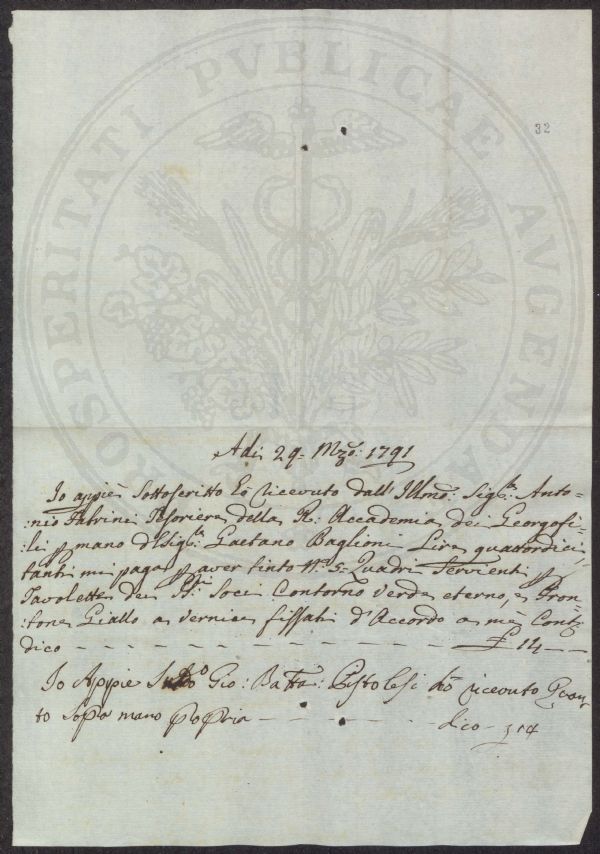 PROSPERITATI PVBLICAE AVGENDAE
32
Adi 29. Mzo: 1791
Io appiè Sottoscritto hò ricevuto dall' Illmo: Sigre: Anto=
:nio Patrini Tesoriere della R: Accademia dei Georgofi=
:li p mano del Sigre: Gaetano Baglioni Lire quattordici,
tanti mi paga p aver tinto No: 5 Quadri Servienti p
Tavolette dei PPi: Soci Contorno verde eterno, e Fron=
:tone Giallo a vernice fissati d'Accordo a mè Conti
dico - - - - - - - - - £ 14 - -
Io Appie Sudo Gio: Batta: Pistolesi hò ricevuto Quan
to Sopa mano propria - - - - - dico - £ 14